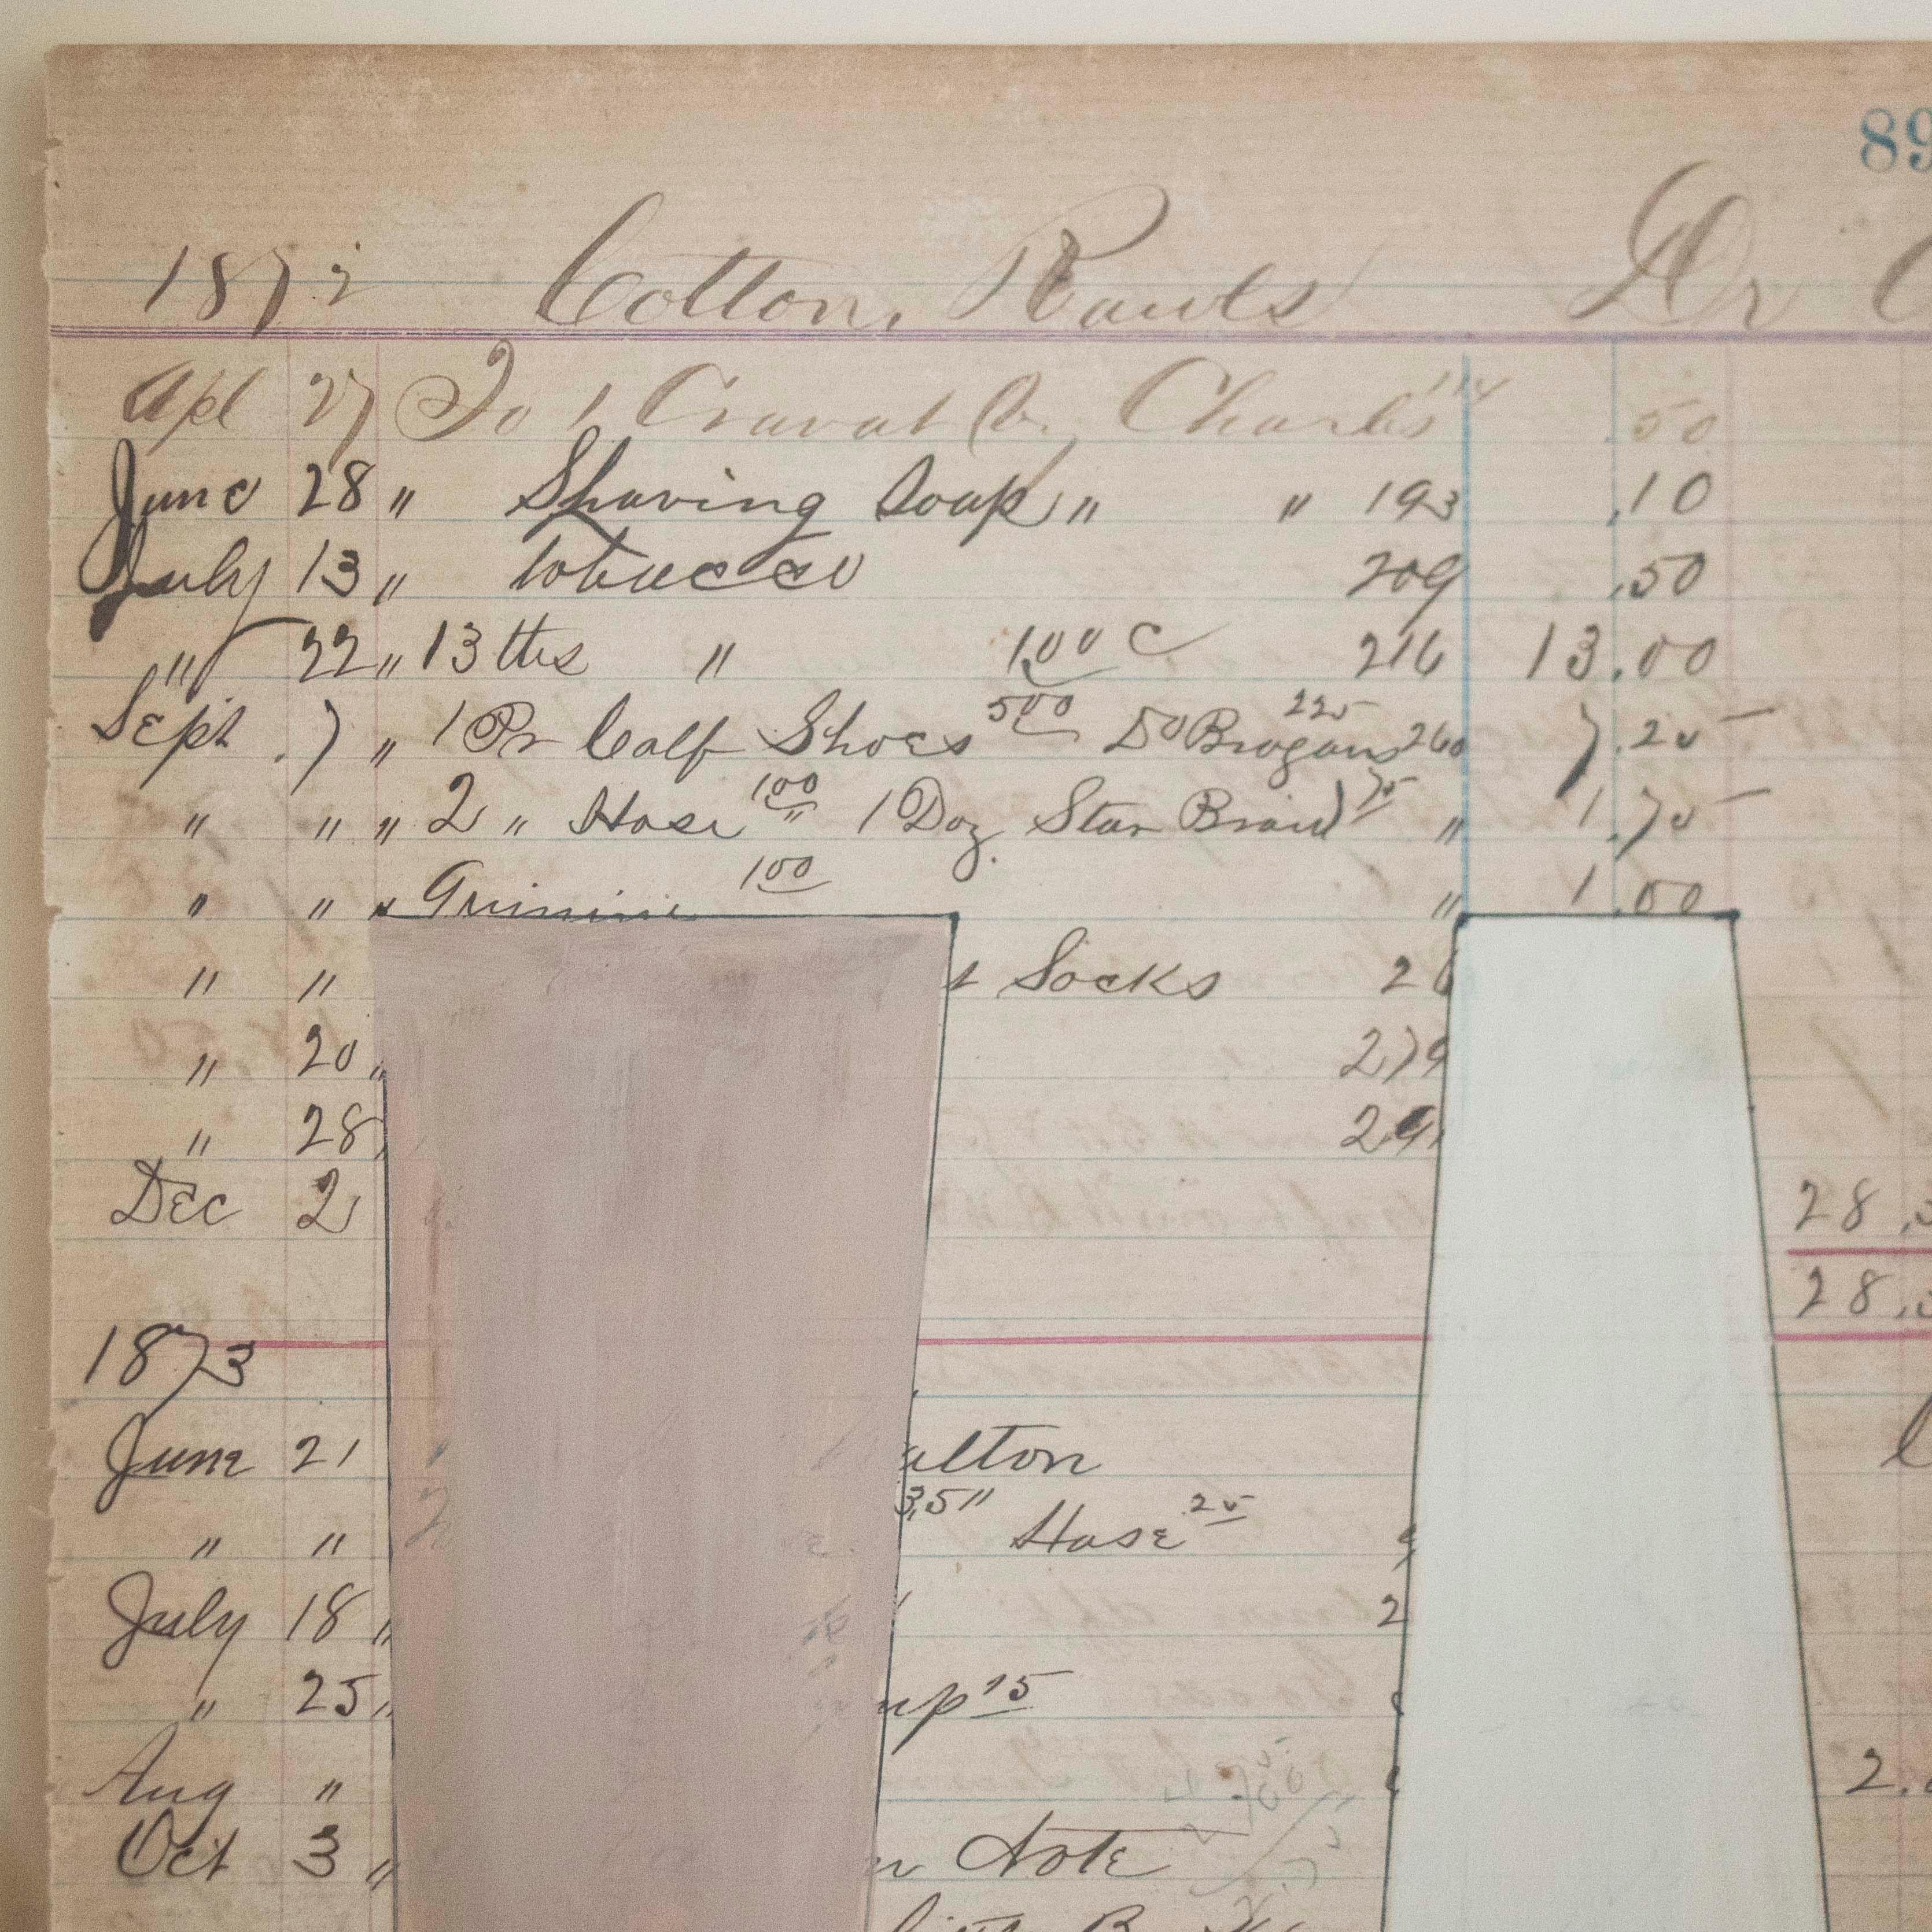 89
1872 Cotton, Rawls Dr
Apl 27 To 1 Cravat Charles 114 .50
June 28 " Shaving Soap " " 193 .10
July 13 " tobacco 209 .50
" 22 " 13 lbs " 1.00 C 216 13.00
Sept. 7 " 1 Pr Calf Shoes 500 Do Brogans 225 260 7.25
" " " 2 " Hose 100 " 1 Doz. Star Braid 75 " 1.75
" " " Quinine 100 " 1.00
" " Socks 26
" 20 " 279
" 28
Dec 2 28
28
1873
June 21 alton
" " 35 " Hose 25
July 18 " 2
" 25 " up 15
Aug " 2.
Oct 3 " Note